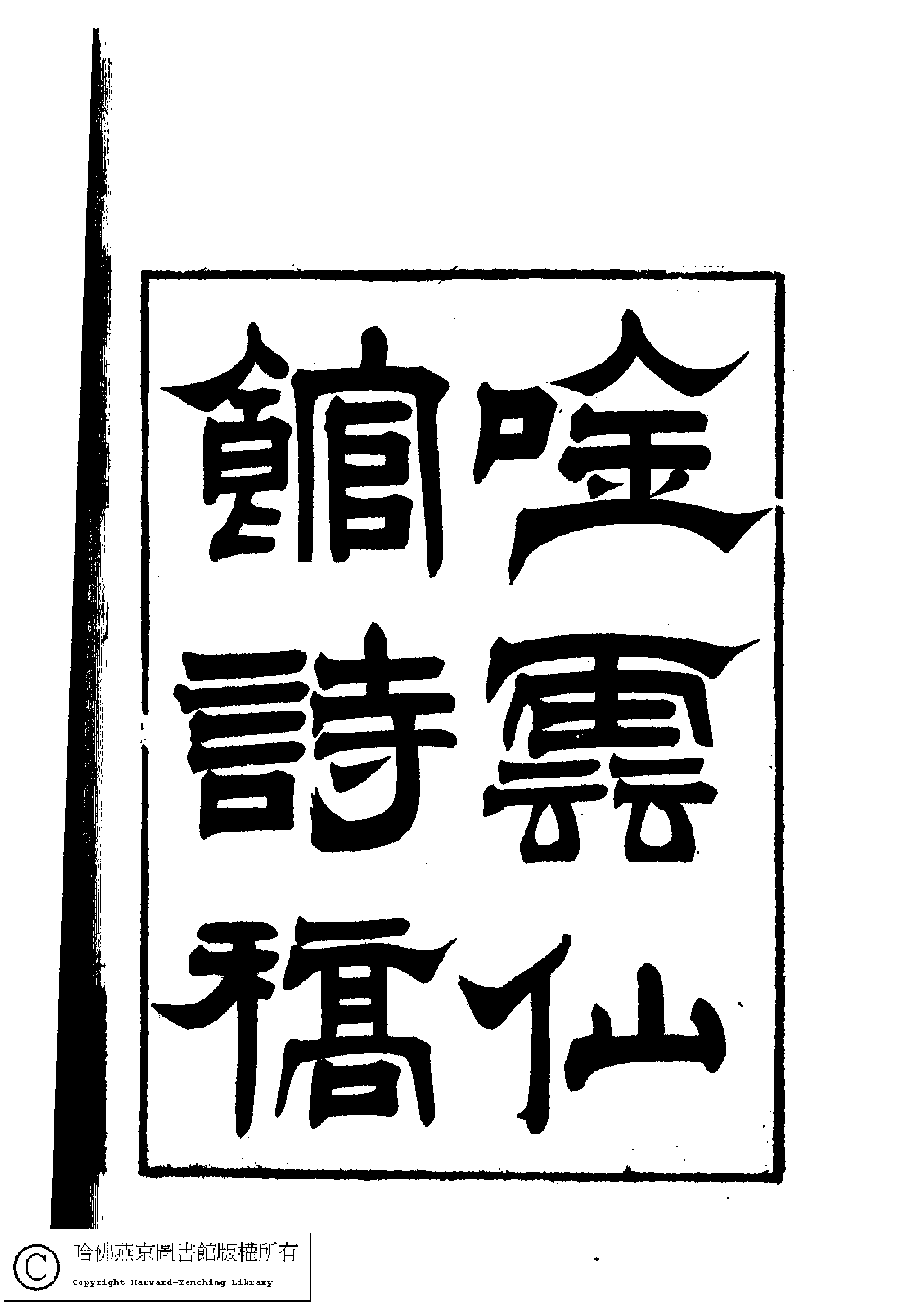 唫雲仙
館詩稿
哈佛燕京圖書館版權所有
Copyright Harvard-Yenching Library